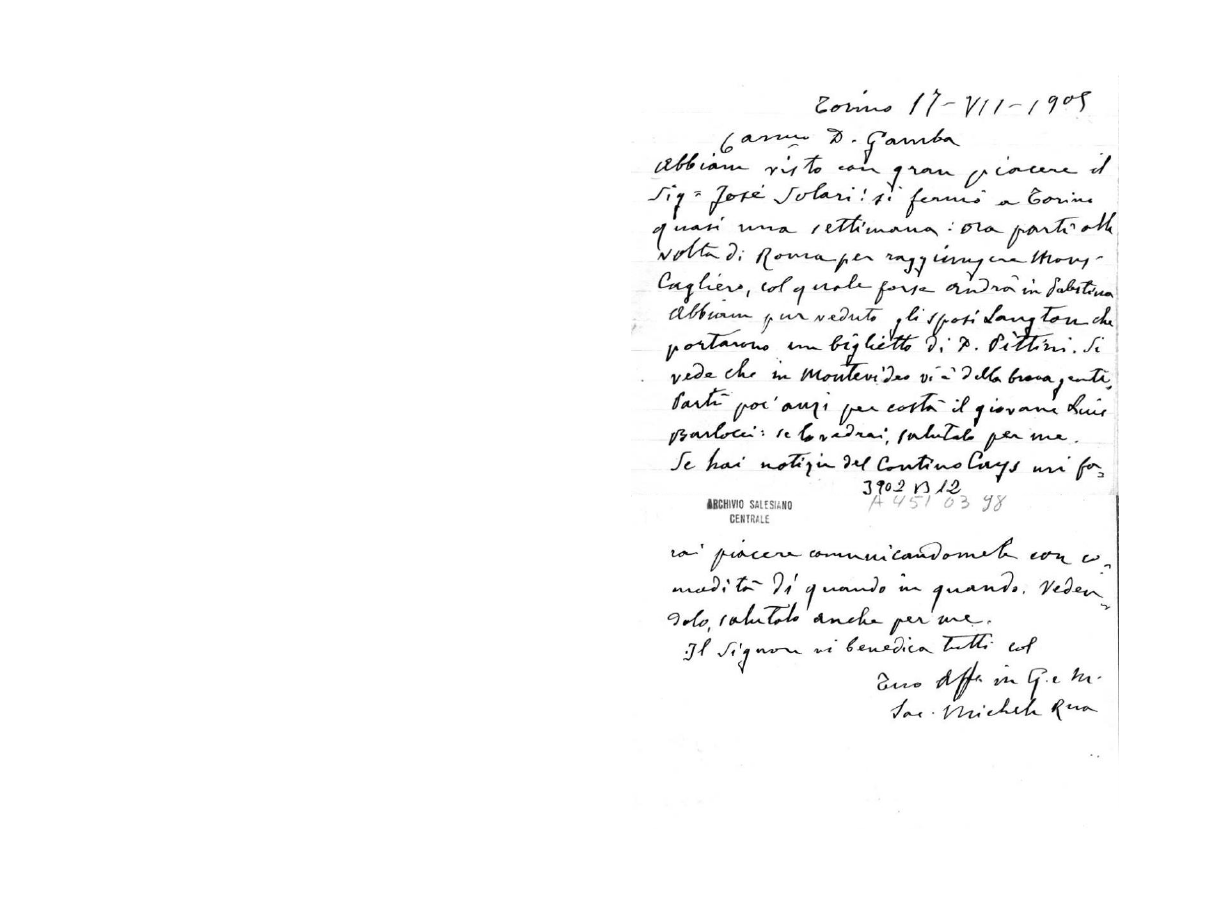 Torino 17-VII-1905
Carmo D. Gamba
Abbiam visto con gran piacere il
Sig.r José Solari: si fermò a Torino
quasi una settimana: ora partì alla
volta di Roma per raggiungere Mons.
Cagliero, col quale forse andrà in Palestina
Abbiam pur veduto gli sposi Langton che
portarono un biglietto di D. Pittini. Si
vede che in Montevideo vi è della brava gente.
Partì poc'anzi per costà il giovane Luis
Barlocci: se lo vedrai, salutalo per me.
Se hai notizie del Contino Cays mi fa-
3902 B 12
A 451 03 98
ARCHIVIO SALESIANO
CENTRALE
rai piacere comunicandomele con co-
modità di quando in quando. Veden-
dolo, salutalo anche per me.
Il Signore vi benedica tutti col
Tuo Aff. in G. e M.
Sac. Michele Rua